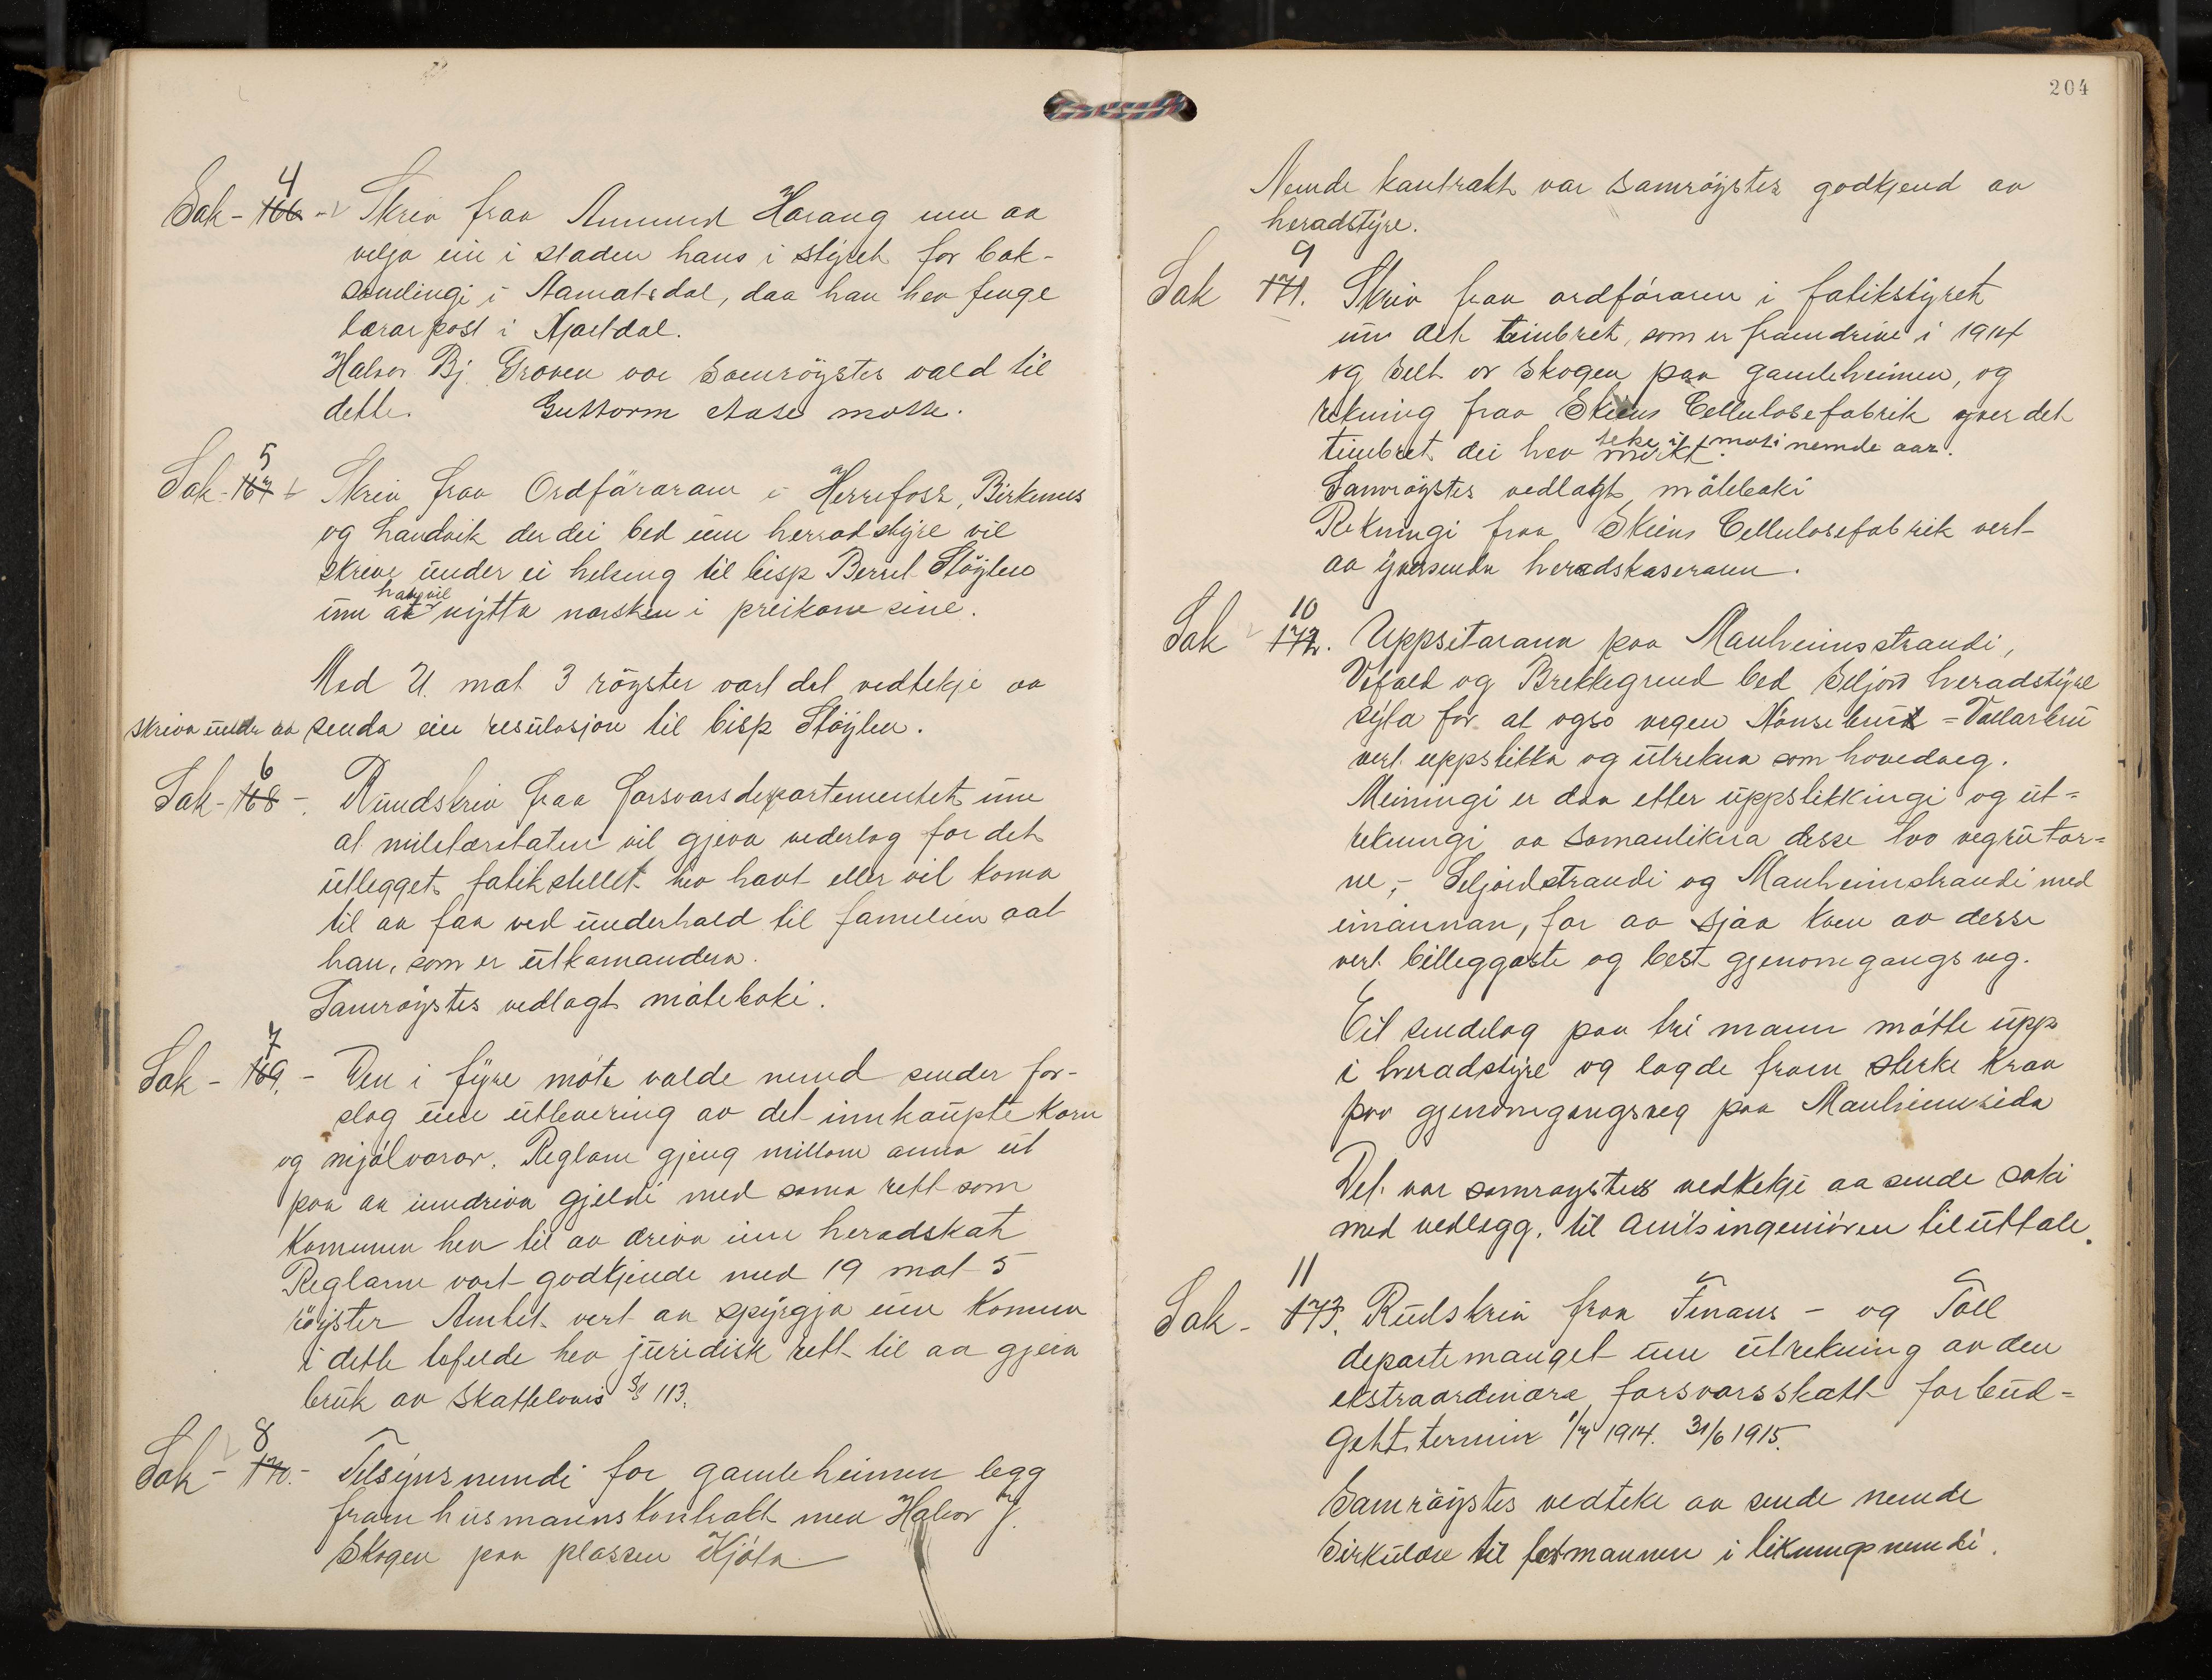 4
Sak - 166 - Skriv fraa Ammund Harang um aa
velja ein i staden hans i styret for bok-
samlingi i Aamotsdal, daa han hev fenge
lærarpost i Hjartdal.
Halvor Bj. Groven var samrøystes vald til
dette. Guttorm Aase møtte.
5
Sak - 167 Skriv fraa Ordførarane i Herrefoss, Birkenes
og Landvik der dei bed um herradstyre vil
skrive under ei helsing til bisp Bernt Støylen
han vil
um at nytta norsken i preikone sine.
Med 21 mot 3 røyster vart det vedtekje aa
skriva under aa senda ein resulosjon til bisp Støylen.
6
Sak - 168 - Rundskriv fraa Forsvarsdepartementet um
at miletærstaten vil gjeva vederlag for det
utlegget fatikstellet hev havt eller vil koma
til aa faa ved underhald til familien aat
han, som er utkomandera.
Samrøystes vedlagt møteboki.
7
Sak - 169. - Den i fyre møte valde nemd sender for-
slag um utlevering av det innkaupte korn
og mjølvarar. Reglane gjeng millom anna ut
paa aa inndriva gjeldi med sama rett som
Kommunen hev til aa driva inn heradskat
Reglarne vart godkjende med 19 mot 5
røyster Amtet vert aa spyrgja um Komunen
i dette tefelde hev juridisk rett til aa gjera
bruk av Skattelovis § 113.
8
Sak - 170. - Tilsynsnemdi for gamleheimen legg
fram husmannskontrakt med Halvor J.
Skogen paa plassen Kjøta
204
Nemde kontrakt var samrøystes godkjend av
heradstyre.
9
Sak 171. Skriv fraa ordføraren i fatikstyret
um det timbret, som er framdrive i 1914
og selt or skogen paa gamleheimen, og
rekning fraa Skiens Cellulosefabrik yver det
teke i mot i
timbret dei hev mirkt nemde aar.
Samrøystes vedlagt møteboki
Rekningi fraa Skiens Cellulosefabrik vert
aa yversenda heradskaseraren.
10
Sak 172. Uppsitarana paa Manheimsstrandi,
Vefald og Brekkegrend bed Seljord heradstyre
syta for at ogso vegen Nønsebuit = Vallarbru
vert uppstikka og utrekna som hovedveg.
Meiningi er daa etter uppstikkingi og ut=
rekningi aa samanlikna desse tvo vegrutar=
ne, - Seljordstrandi og Manheimstrandi med
einannan, for aa sjaa kven av desse
vert billeggaste og best gjenomgangsveg.
Eit sendelag paa tri mann møtte upp
i heradstyre og lagde fram sterke krav
paa gjenomgangsveg paa Manheimsida
Det var samrøystes vedtekje aa sende saki
med vedlegg. til Amtsingeniøren til uttale.
11
Sak - 173. Rudskriv fraa Finans - og Toll
departemanget um utrekning av den
ekstraordinære forsvarsskatt for bud=
gettermin 1/7 1914. 31/6 1915.
Samrøystes vedteke aa sende nemde
Sirkulære til formannen i likningsnemdi.